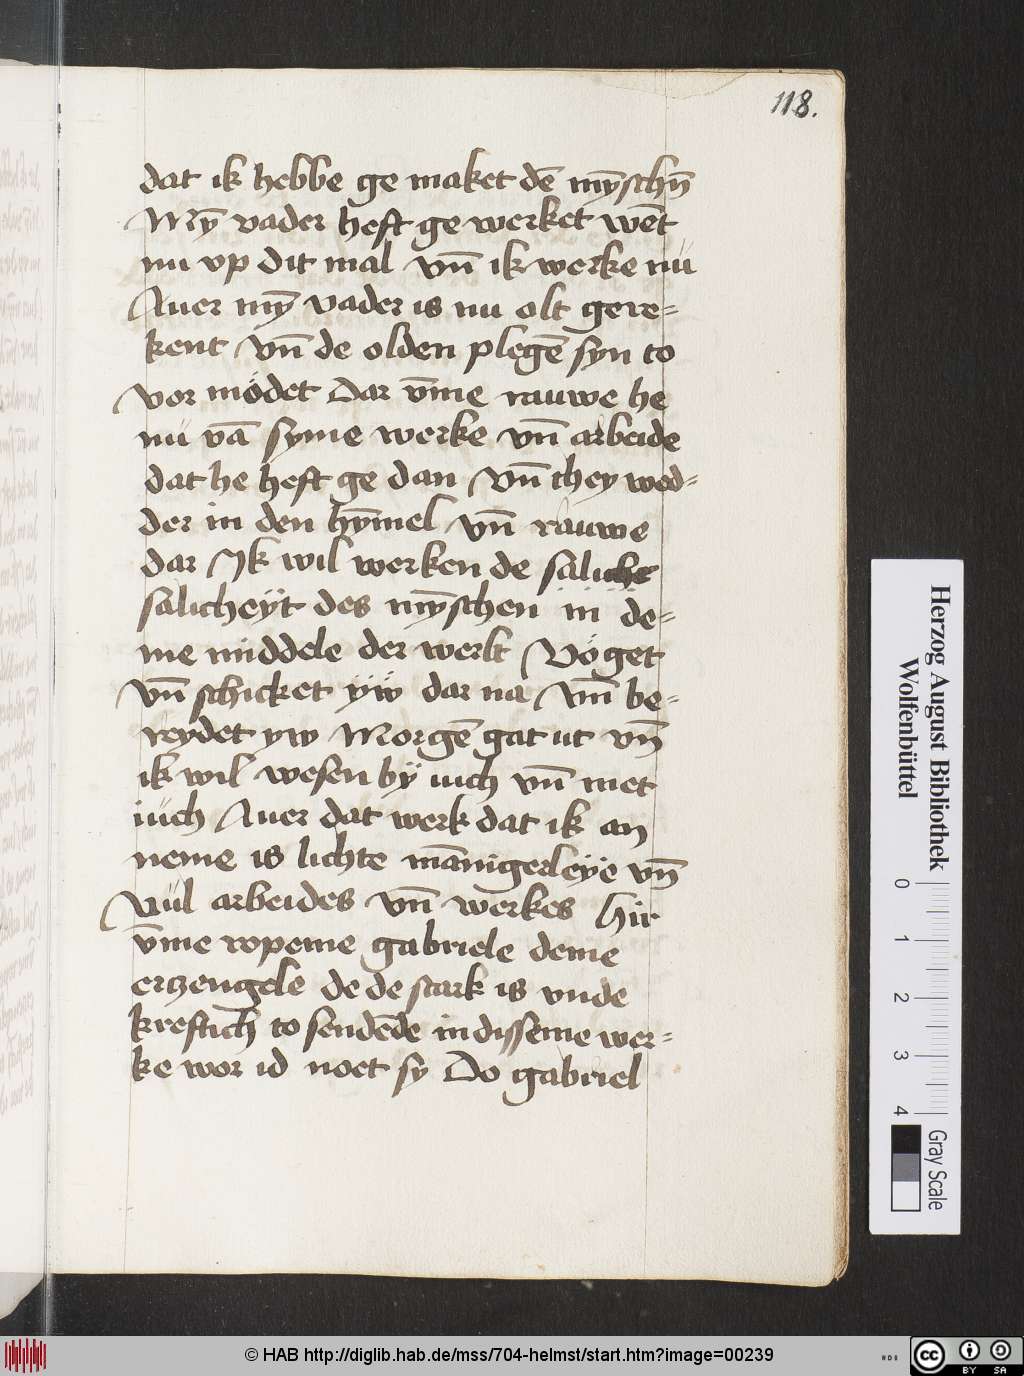 118.
dat ik hebbe ge maket dē mȳschn̄
Mȳ vader heft ge werket wēt
nu vp dit mal vn̄ ik werke nü
Auer mȳ vader is nu olt gere-
kent vn̄ de olden plegē syn to
vor mödet Dar v̄me rauwe he
nü vā syme werke vn̄ arbeide
dat he heft ge dan vn̄ they wed-
der in den hȳmel vn̄ rauwe
dar Ik wil werken de saliche
salicheÿt des mȳschen in de-
me middele der werlt Vöget
vn̄ schicket ÿw dar na vn̄ be-
reydet yw Morgē gat ut vn̄
ik wil wesen bÿ iuch vn̄ met
iüch Auer dat werk dat ik an
neme is lichte mānigerleÿe vn̄
vül arbeides vn̄ werkes Hir
v̄me ropeme gabriele deme
ertzengele de de stark is vnde
kreftich to sendēde in disseme wer-
ke wor id noet sy Do gabriel
Herzog August Bibliothek
Wolfenbüttel
0 1 2 3 4
Gray Scale
© HAB http://diglib.hab.de/mss/704-helmst/start.htm?image=00239
cc BY SA